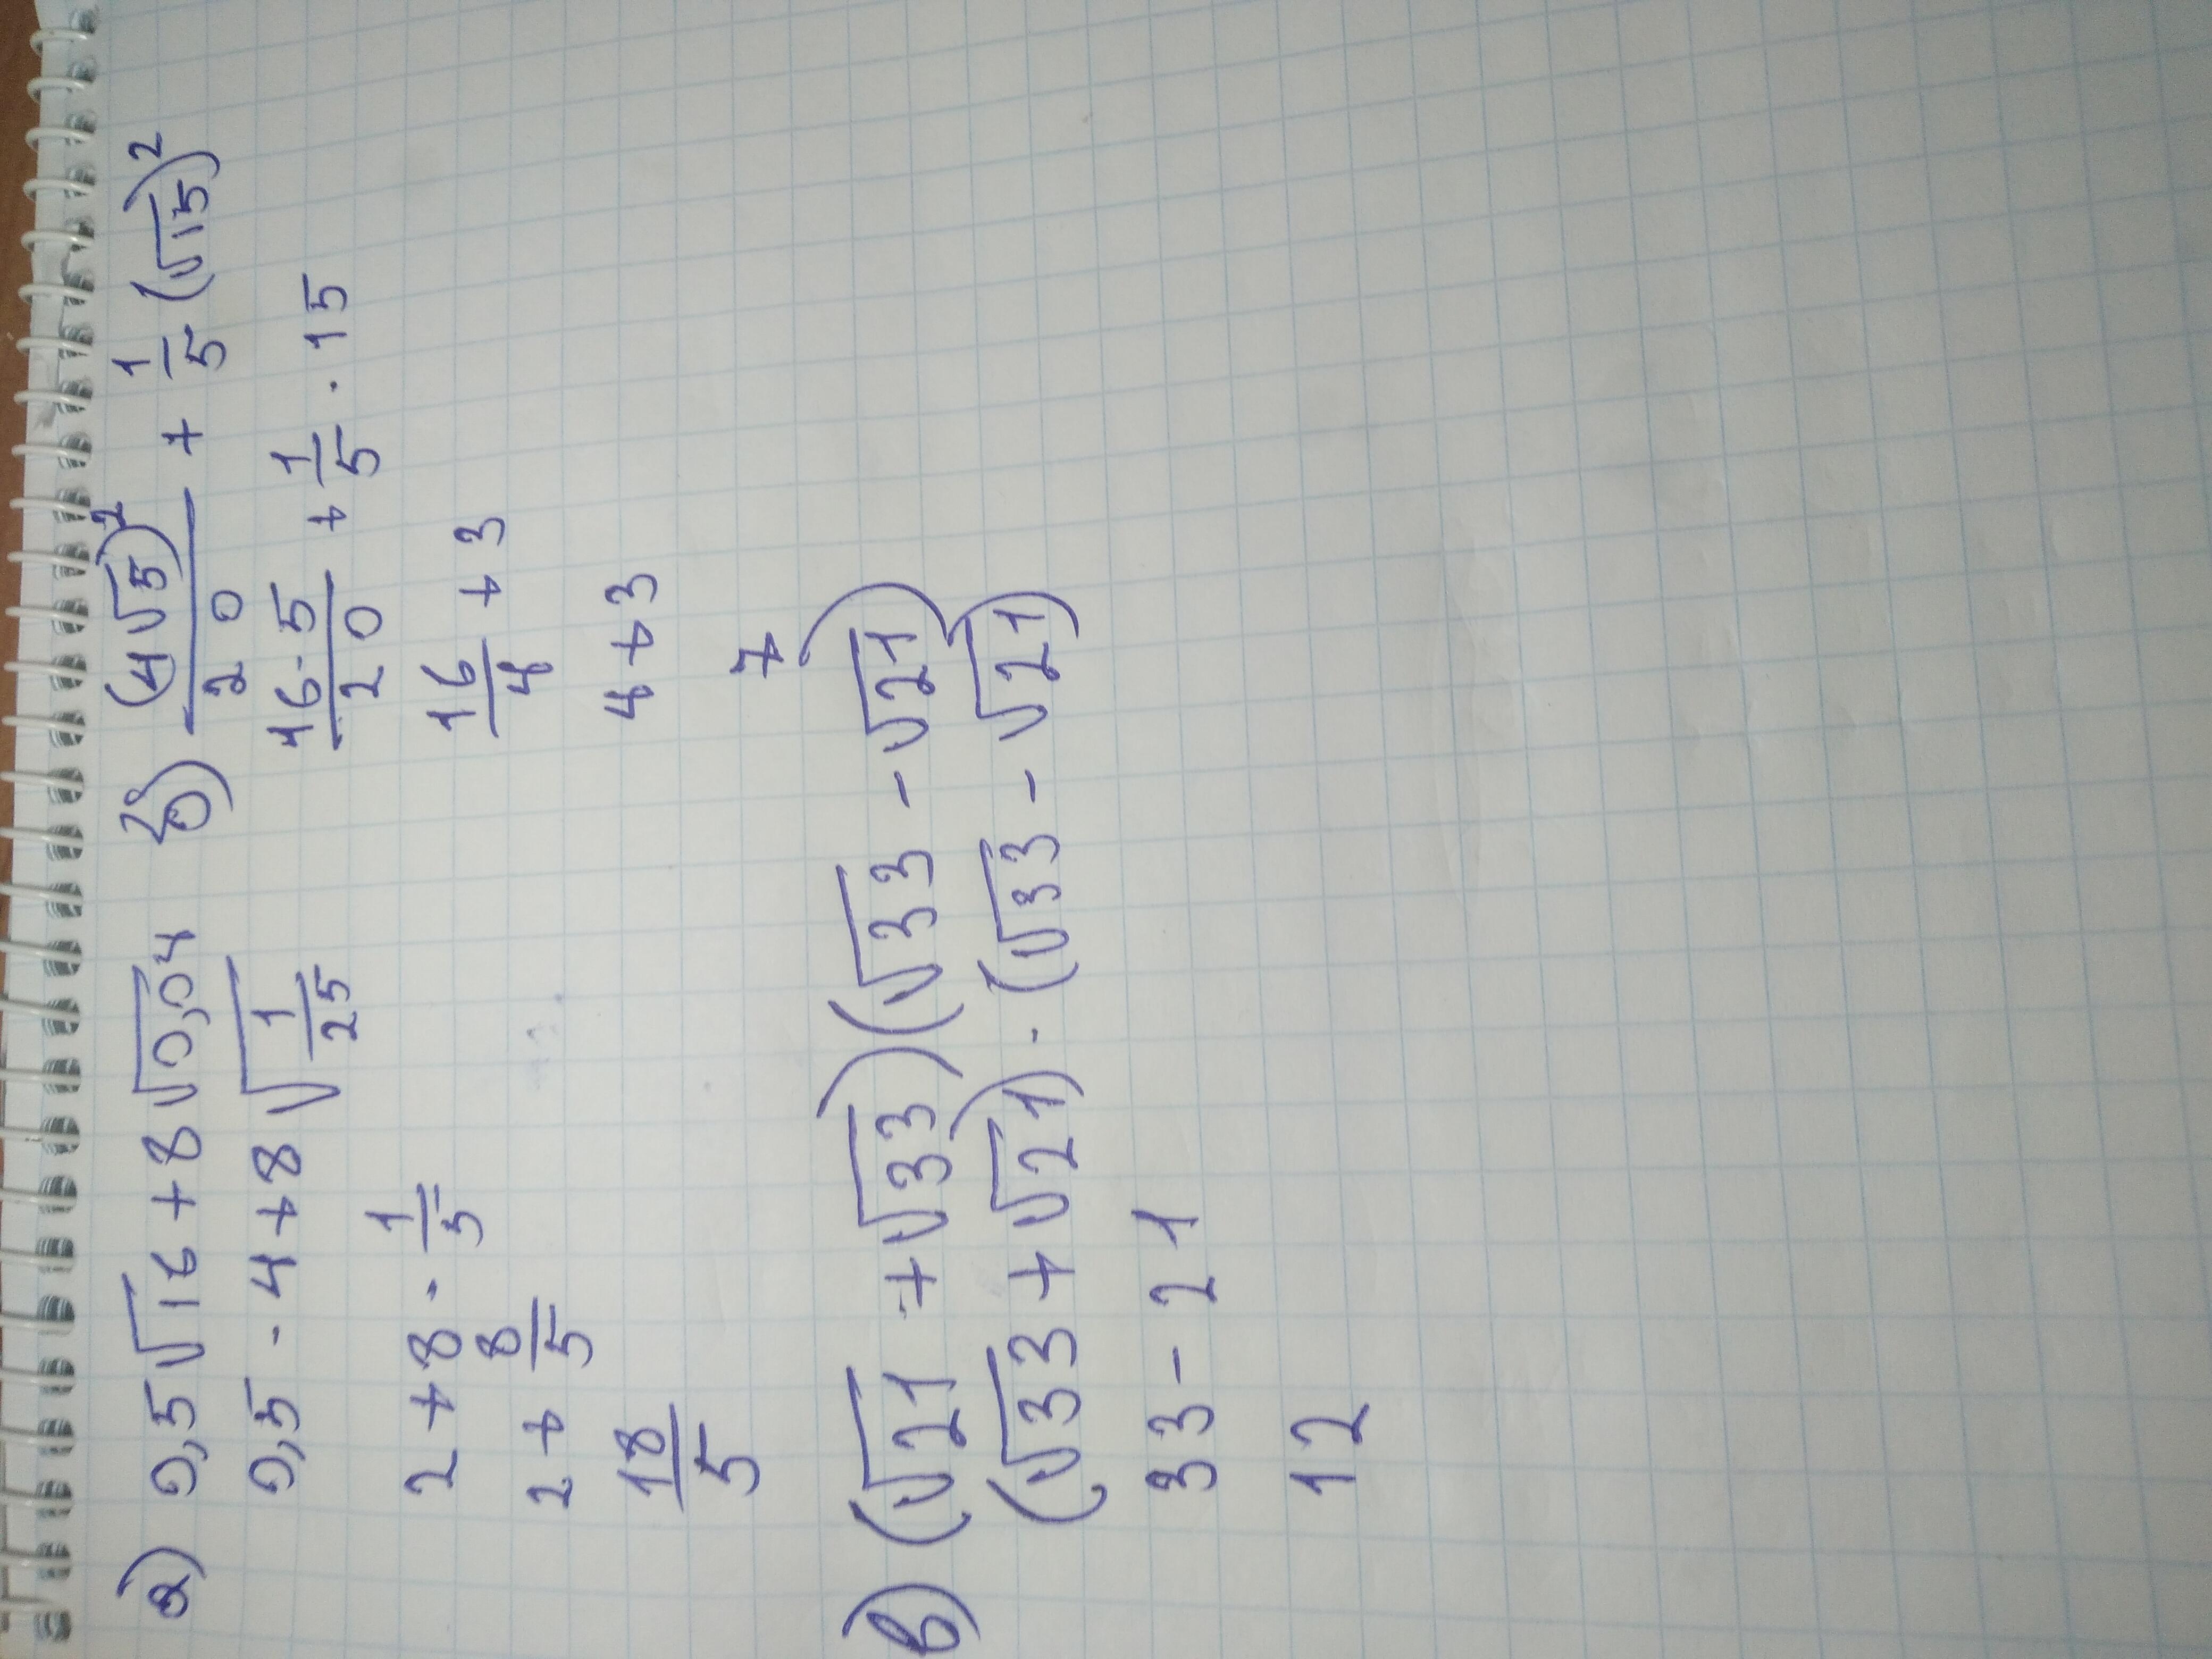 а) 0,5√16 + 8√0,04
0,5 · 4 + 8√1/25
2 + 8 · 1/5
2 + 8/5
18/5
б) (4√5)²/20 + 1/5 (√15)²
16·5/20 + 1/5 · 15
16/4 + 3
4 + 3
7
в) (√21 + √33)(√33 - √21)
(√33 + √21) · (√33 - √21)
33 - 21
12